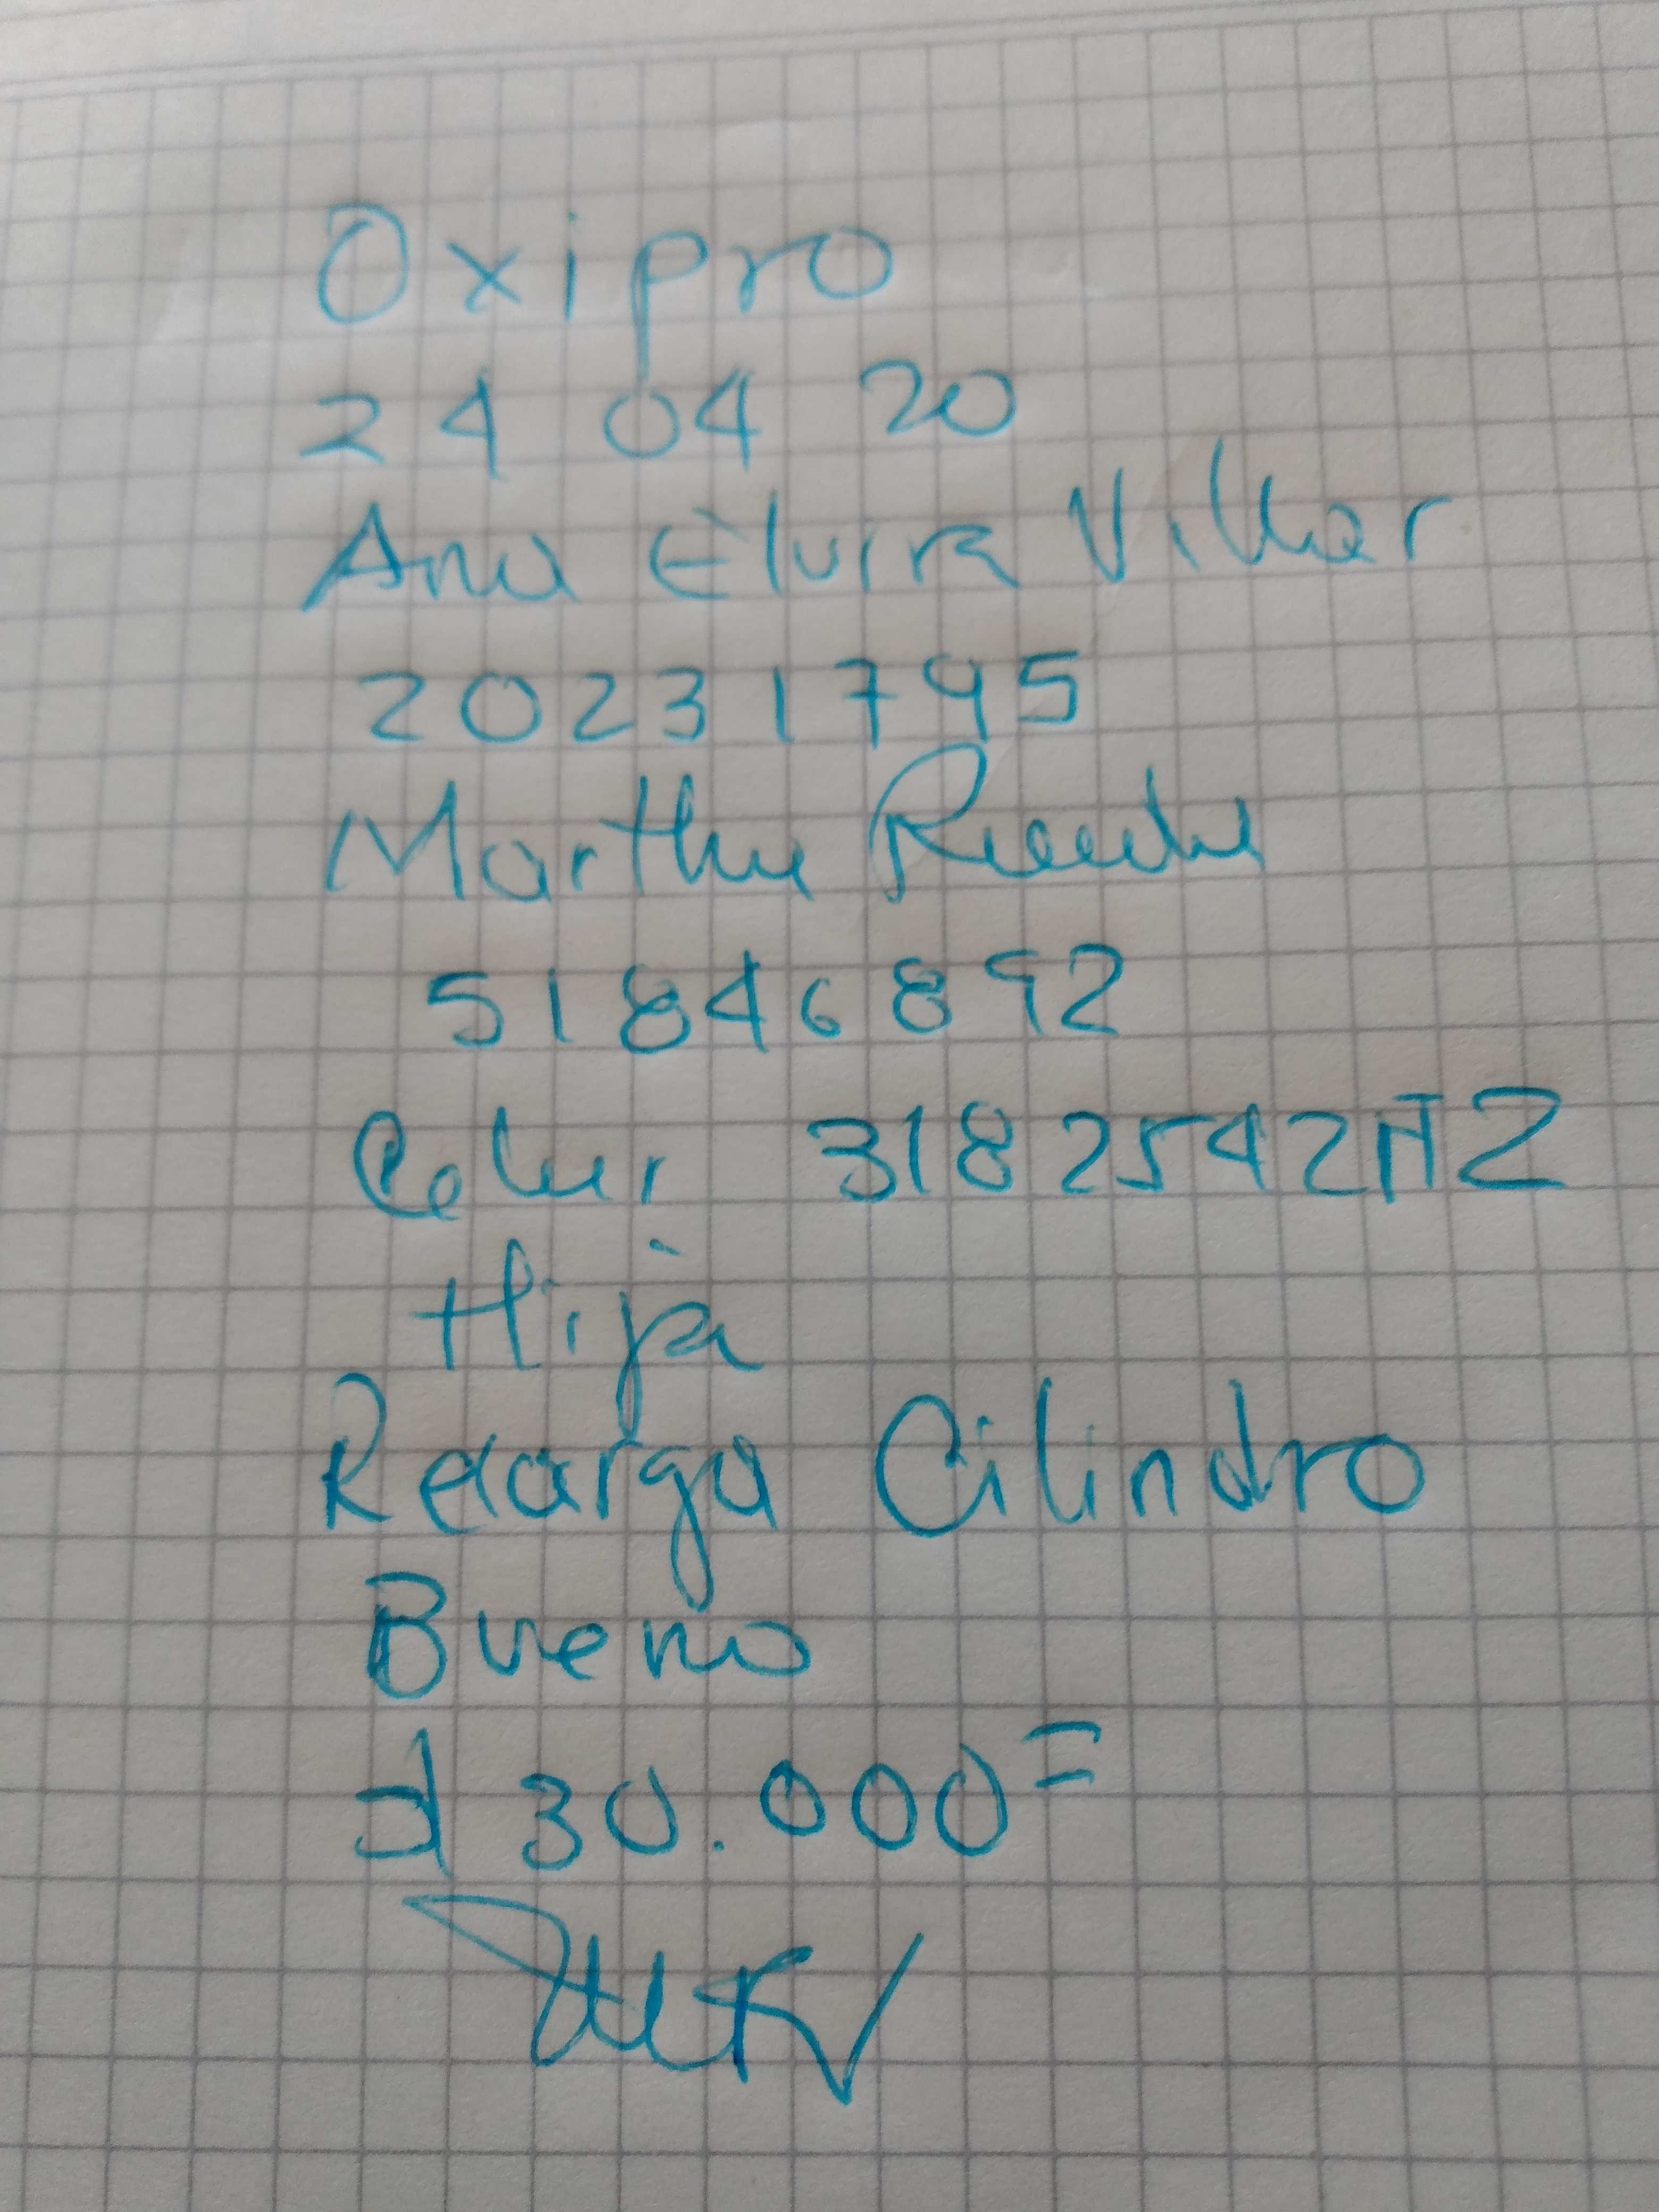 Oxipro
24 04 20
Ana Elvira Villar
20231795
Martha
51846892
Celur 3182542172
Hija
Recarga Cilindro
Bueno
30.000=